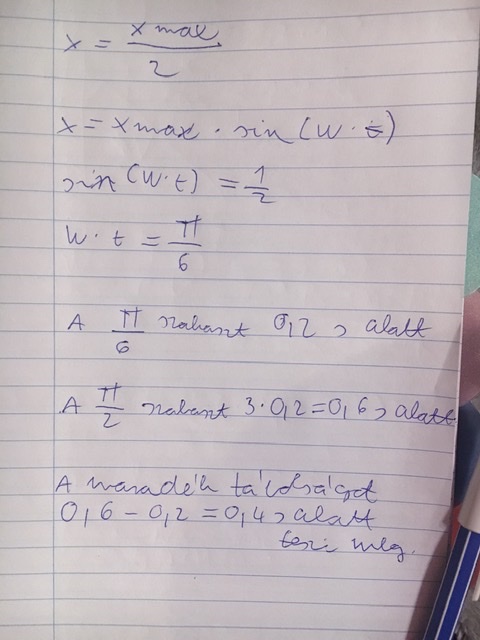 x = x max / 2
x = x max · sin (W · t)
sin (W · t) = 1/2
W · t = π/6
A π/6 szakaszt 0,2 s alatt
A π/2 szakaszt 3 · 0,2 = 0,6 s alatt
A maradék távolságot
0,6 - 0,2 = 0,4 s alatt
teszi meg.